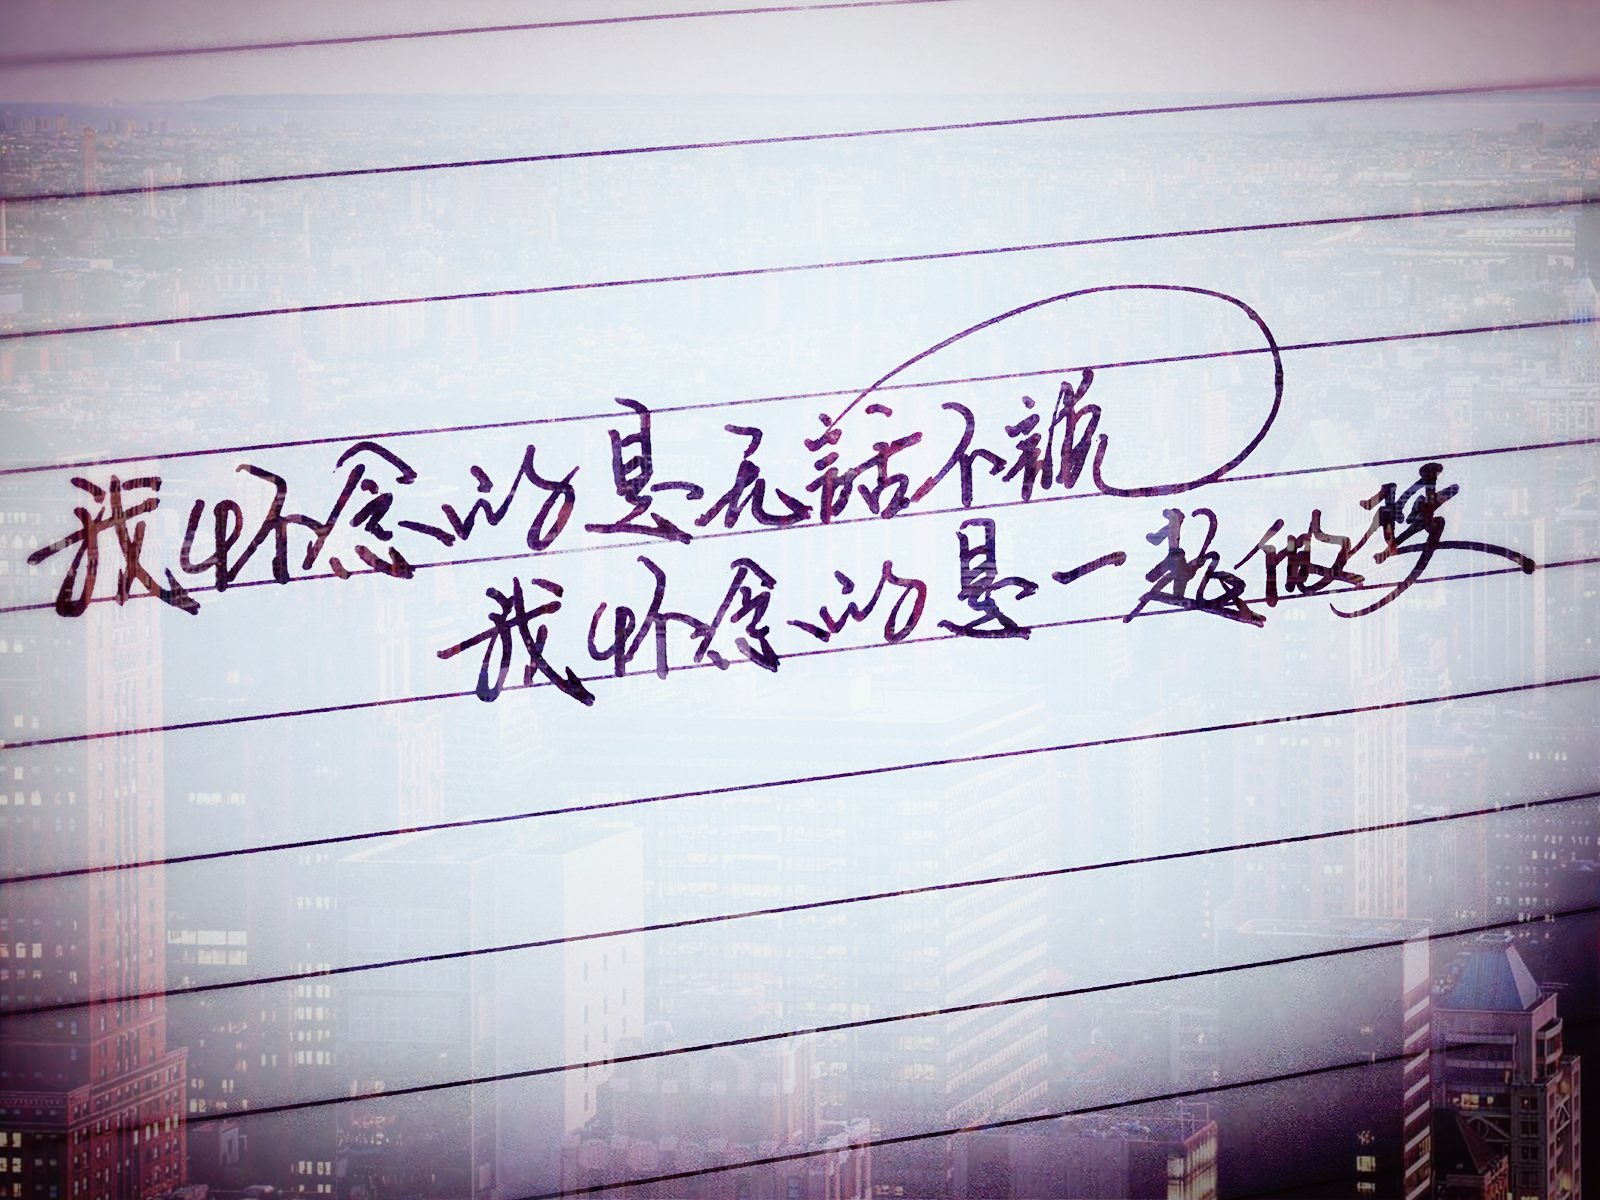 我怀念的是无話不說
我怀念的是一起做梦